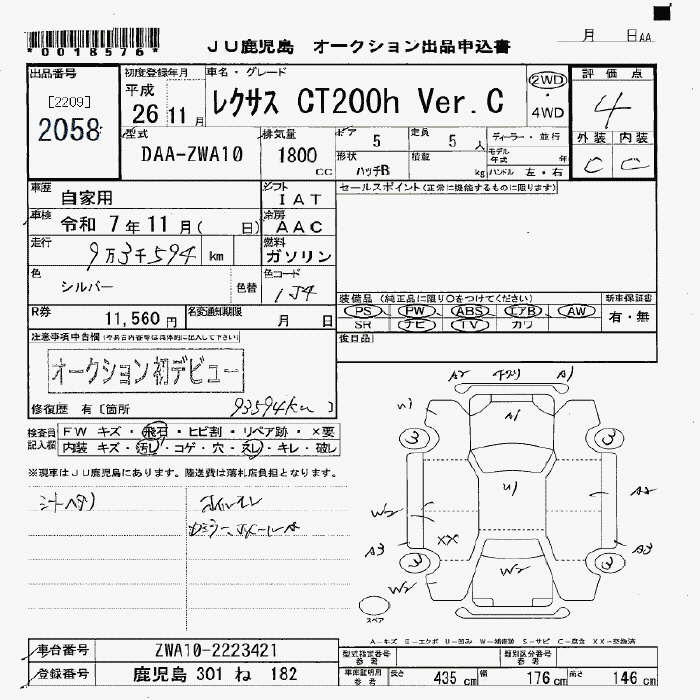 *0018576*
JU鹿児島 オークション出品申込書
月 日AA
出品番号
[2209]
2058
初度登録年月
平成
26 11月
車名・グレード
レクサス CT200h Ver.C
2WD
・
4WD
評価点
4
外装 内装
C C
型式
DAA-ZWA10
排気量
1800 CC
ドア 5
定員 5 人
形状 ハッチB
積載 kg
ディーラー・並行
モデル年式 年
ハンドル 左・右
車歴 自家用
シフト IAT
セールスポイント(正常に機能するものに限ります)
車検 令和 7年 11月( 日)
冷房 AAC
走行 9万3千594 km
燃料 ガソリン
色 シルバー
色替
色コード 1J4
装備品 (純正品に限り○をつけてください)
新車保証書
PS PW ABS エアB AW
有・無
SR ナビ TV カワ
R券 11,560 円
名変通知期限 月 日
後日品
注意事項申告欄
オークション初デビュー
修復歴 有〔箇所 93594km 〕
検査員記入欄
FW キズ・飛石・ヒビ割・リペア跡・×要
内装 キズ・汚し・コゲ・穴・スレ・キレ・破し
※現車はJU鹿児島にあります。陸送費は落札店負担となります。
シートヘタリ
A2 A1
U1
A1
3 3
U1
W2
A2
A3 A3
XX
3 3
W2 W2
スペア
A-キズ E-エクボ U-凹み W-補修跡 S-サビ C-腐食 XX-交換済
車台番号 ZWA10-2223421
登録番号 鹿児島 301 ね 182
型式指定番号 参考
類別区分番号 参考
車庫証明用 参考
長さ 435 cm 幅 176 cm 高さ 146 cm